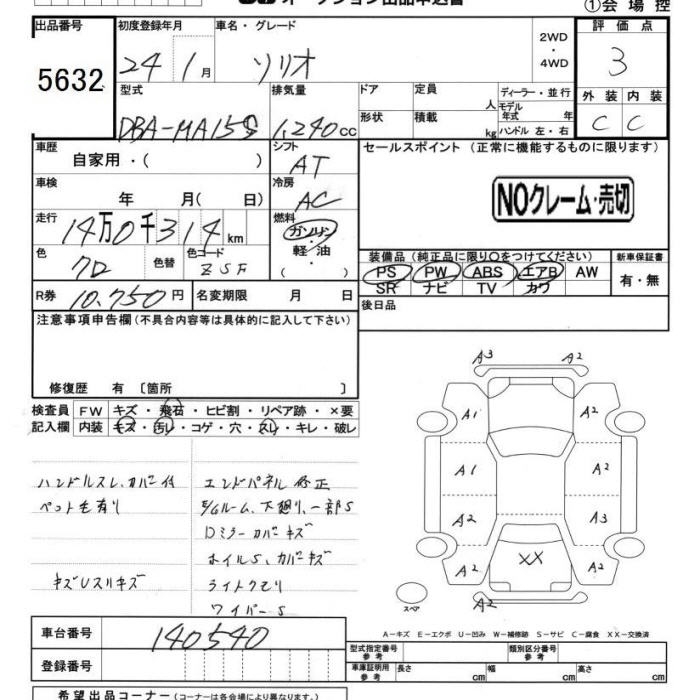 オークション出品申込書
①会場控
出品番号 初度登録年月 車名・グレード 2WD・4WD 評価点
5632 24 1月 ソリオ 3
型式 排気量 ドア 定員 人 ディーラー・並行 外装 内装
DBA-MA15S 1,240cc 形状 積載 kg モデル年式 年 ハンドル 左・右 C C
車歴 自家用・( ) シフト AT セールスポイント(正常に機能するものに限ります)
車検 年 月( 日) 冷房 AC NOクレーム・売切
走行 14万0千314km 燃料 ガソリン・軽油・( )
装備品(純正品に限り○をつけてください) 新車保証書
色 クロ 色替 色コード ZSF PS PW ABS エアB AW 有・無
SR ナビ TV カワ
R券 10,750円 名変期限 月 日 後日品
注意事項申告欄(不具合内容等は具体的に記入して下さい)
修復歴 有〔箇所 〕
検査員 FW キズ・飛石・ヒビ割・リペア跡・×要
記入欄 内装 キズ・汚レ・コゲ・穴・スレ・キレ・破レ
ハンドルスレ、カバー付 エンドパネル修正
ペット毛有り E/Gルーム、下廻り、一部S
Dミラーカバーキズ
ホイルS、カバーキズ
キズUスリキズ ライトクモリ
ワイパーS
A3 A2
A1 A2
A1
A2 A3
A2 XX A2
A2
スペア
A-キズ E-エクボ U-凹み W-補修跡 S-サビ C-腐食 XX-交換済
車台番号 140540 型式指定番号 参考 類別区分番号 参考
登録番号 車庫証明用 参考 長さ cm 幅 cm 高さ cm
希望出品コーナー(コーナーは各会場により異なります)